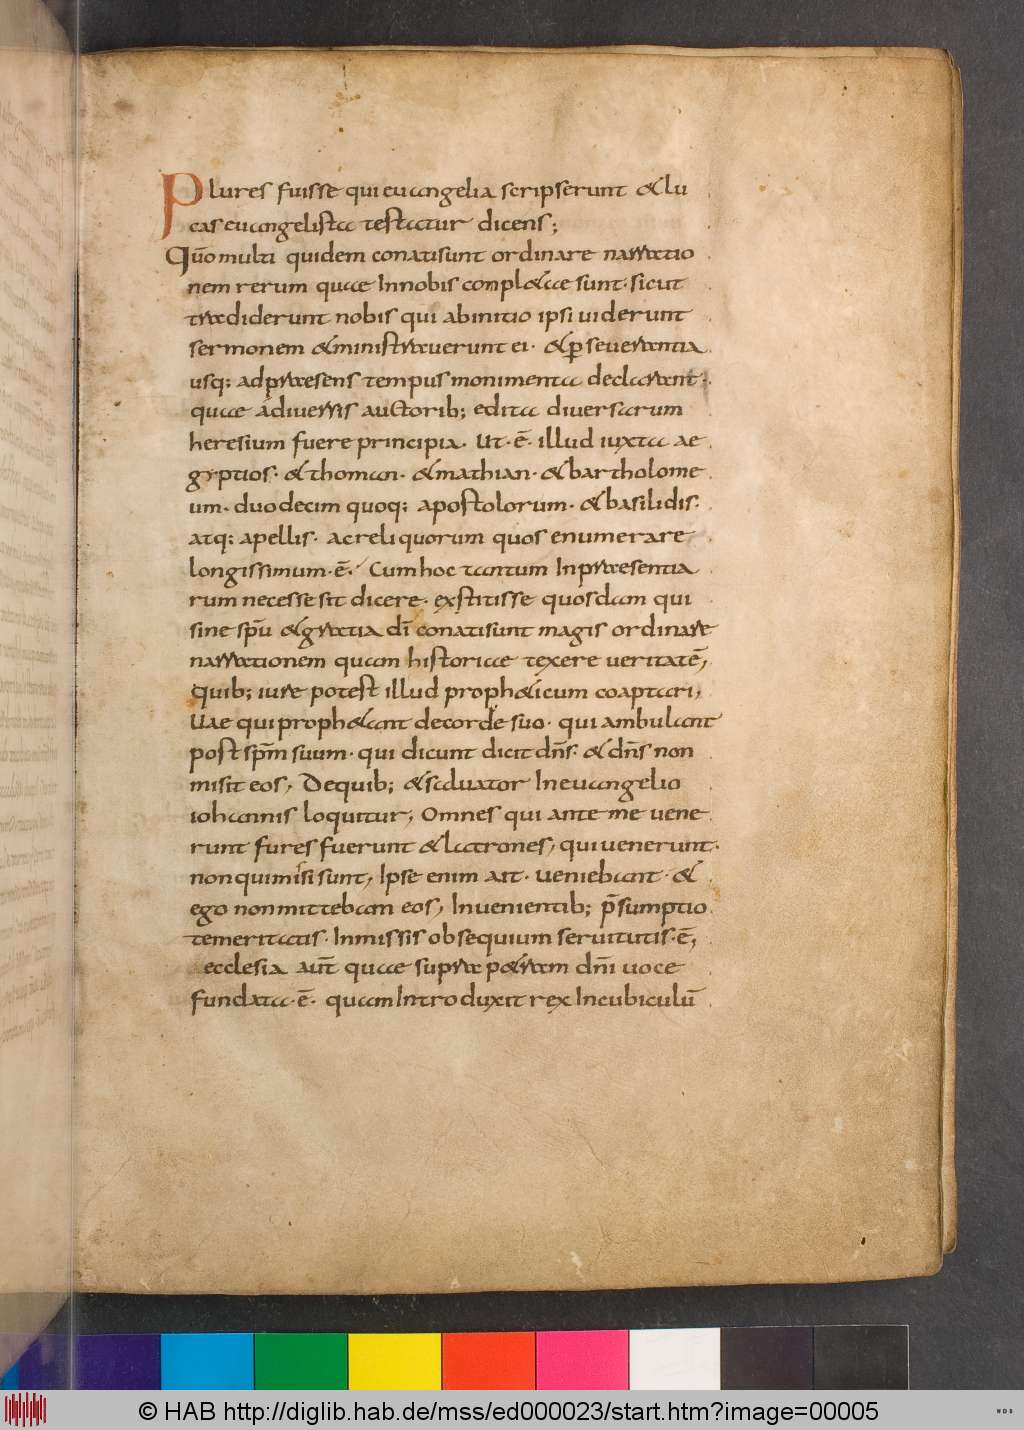 Plures fuisse qui euangelia scripserunt & lu
cas euangelista testatur dicens;
Qūo multi quidem conati sunt ordinare narratio
nem rerum quae In nobis conpl&ae sunt · sicut
tradiderunt nobis qui ab initio ipsi uiderunt
sermonem & ministrauerunt ei · & ꝑseuerantia
usq; ad praesens tempus monimenta declarant ·
quae a diuersis auctorib; edita diuersarum
heresium fuere principia · Ut · ē · illud iuxta ae
gyptios · & thoman · & mathian · & bartholome
um · duodecim quoq; apostolorum · & basilidis ·
atq; apellis · ac reliquorum quos enumerare
longissimum · ē · Cum hoc tantum In praesentia
rum necesse sit dicere · exstitisse quosdam qui
sine sp̄u & gratia dī conati sunt magis ordinare
narrationem quam historiae texere ueritatē,
Quib; iure potest illud proph&icum coaptari,
Uae qui proph&ant de corde suo · qui ambulant
post sp̄m suum · qui dicunt dicit dn̄s · & dn̄s non
misit eos, De quib; & saluator In euangelio
iohannis loquitur, Omnes qui ante me uene
runt fures fuerunt & latrones, qui uenerunt ·
non qui misi sunt, Ipse enim ait · ueniebant · &
ego non mittebam eos, In uenientib; p̄sumptio
temeritatis · In missis obsequium seruitutis · ē,
ecclesia aut̄ quae supra p&ram dn̄i uoce
fundata · ē · quam Introduxit rex In cubiculū
© HAB http://diglib.hab.de/mss/ed000023/start.htm?image=00005
WDB